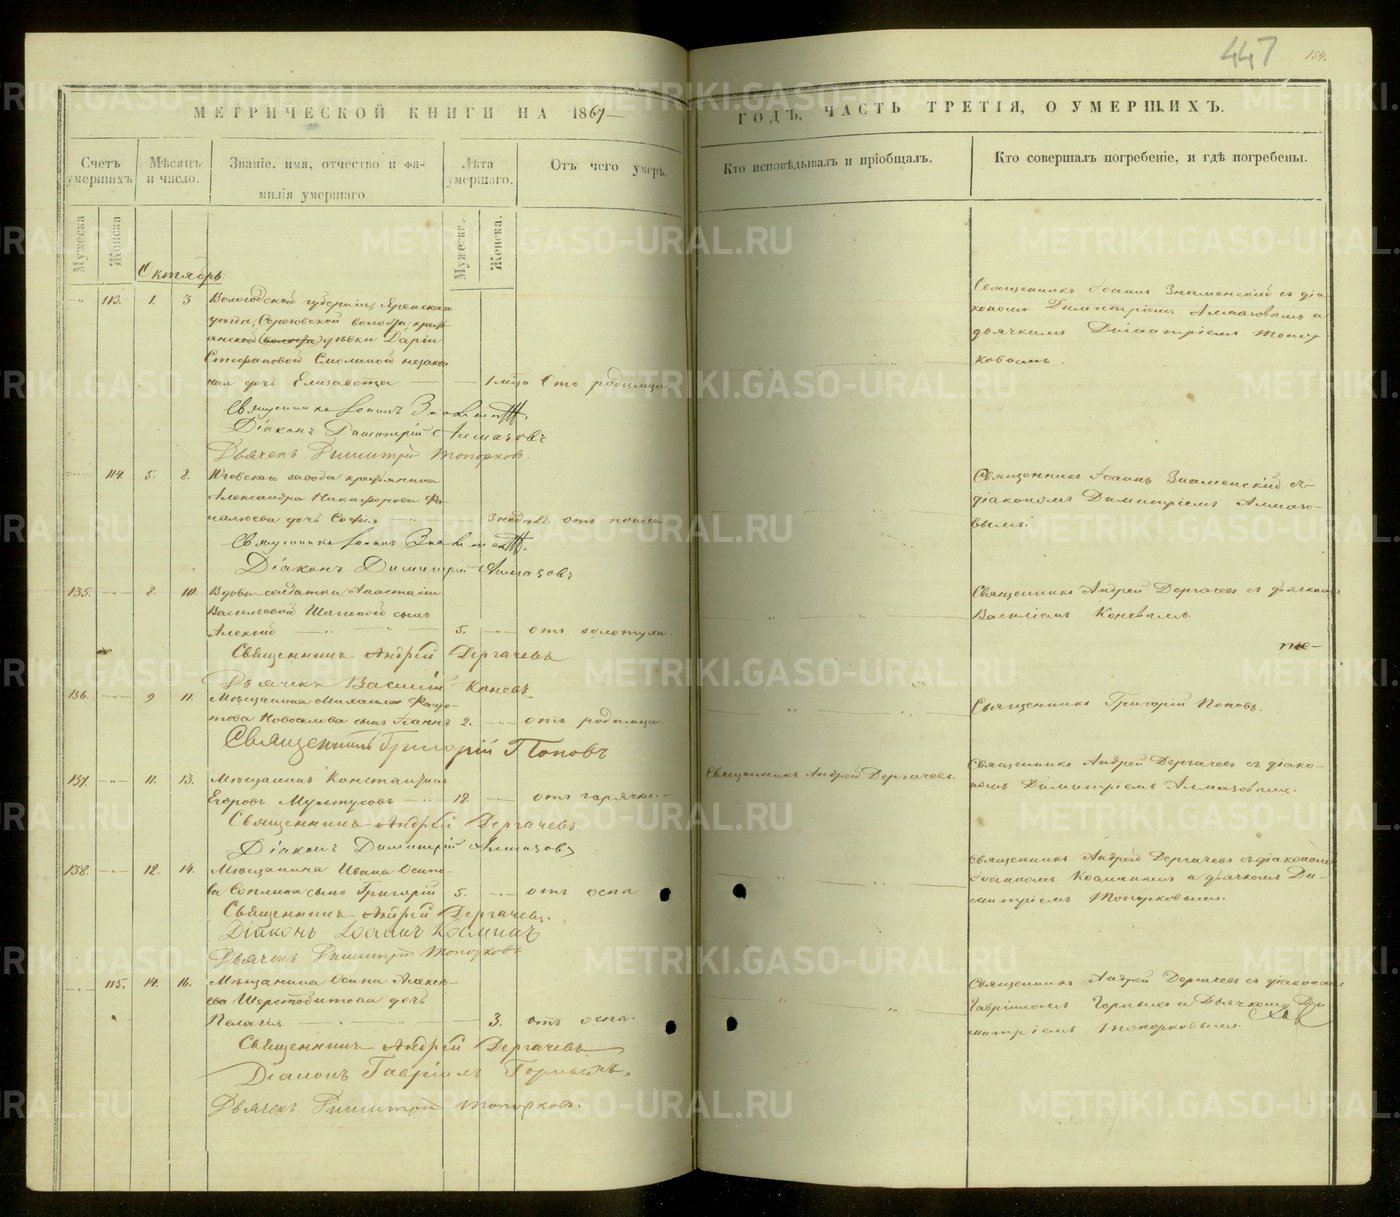 447
184.
МЕТРИЧЕСКОЙ КНИГИ НА 1867
ГОДЪ, ЧАСТЬ ТРЕТІЯ, О УМЕРШИХЪ.
Счетъ умершихъ.
Мѣсяцъ и число.
Званіе, имя, отчество и фа-
милія умершаго
Лѣта умершаго.
Отъ чего умеръ.
Кто исповѣдывалъ и пріобщалъ.
Кто совершалъ погребеніе, и гдѣ погребены.
Мужеска
Женска
Мужеска.
Женска.
Октябрь
113. 1. 3 Вологодской губерніи, Яренскаго
уѣзда, Сереговской волости, крест-
янской дѣвки Даріи
Стефановой Смолиной незакон
ная дочь Елизавета 1 мѣсц Отъ родимца
Священникъ Іоаннъ Знаменскій съ діа
кономъ Димитріемъ Алмазовымъ и
дьячкомъ Димитріемъ Топор-
ковымъ
Священникъ Іоаннъ
Діаконъ Димитрій Алмазовъ
Дьячекъ Димитрій Топорковъ.
114. 5. 8. Юговскаго завода крестьянина
Александра Никифорова
дочь Софія 3 недѣль отъ поноса
Священникъ Іоаннъ Знаменскій съ
діакономъ Димитріемъ Алмазо-
вымъ.
Священникъ Іоаннъ
Діаконъ Димитрій Алмазовъ
135. 8. 10. Вдовы солдатки Анастасіи
Васильевой сынъ
Алексій 5. отъ золотухи.
Священникъ Андрей Дергачевъ съ дьячкомъ
Василіемъ Коневымъ.
Священникъ Андрей Дергачевъ
Дьячекъ Василій Коневъ
136. 9 11. Мѣщанина Михаила Федо-
това Новоселова сынъ Іоаннъ 2. отъ родимца.
Священникъ Григорій Поповъ.
Священникъ Григорій Поповъ
137. 11. 13. Мѣщанинъ Константинъ
Егоровъ 18. отъ горячки
Священникъ Андрей Дергачевъ.
Священникъ Андрей Дергачевъ съ діако-
номъ Димитріемъ Алмазовымъ.
Священникъ Андрей Дергачевъ.
Діаконъ Димитрій Алмазовъ
138. 12. 14. Мѣщанина Ивана Осипо-
ва сынъ Григорій 5. отъ оспы
Священникъ Андрей Дергачевъ съ діакономъ
Іоанномъ и дьячкомъ Ди-
митріемъ Топорковымъ.
Священникъ Андрей Дергачевъ.
Діаконъ Іоаннъ
Дьячекъ Димитрій Топорковъ
115. 14. 16. Мѣщанина Осипа Алексѣ-
ева Шерстобитова дочь
Пелагія 3. отъ оспы.
Священникъ Андрей Дергачевъ съ діакономъ
Гавріиломъ Горныхъ и Дьячкомъ Ди
митріемъ Топорковымъ.
Священникъ Андрей Дергачевъ
Діаконъ Гавріилъ Горныхъ.
Дьячекъ Димитрій Топорковъ.
METRIKI.GASO-URAL.RU